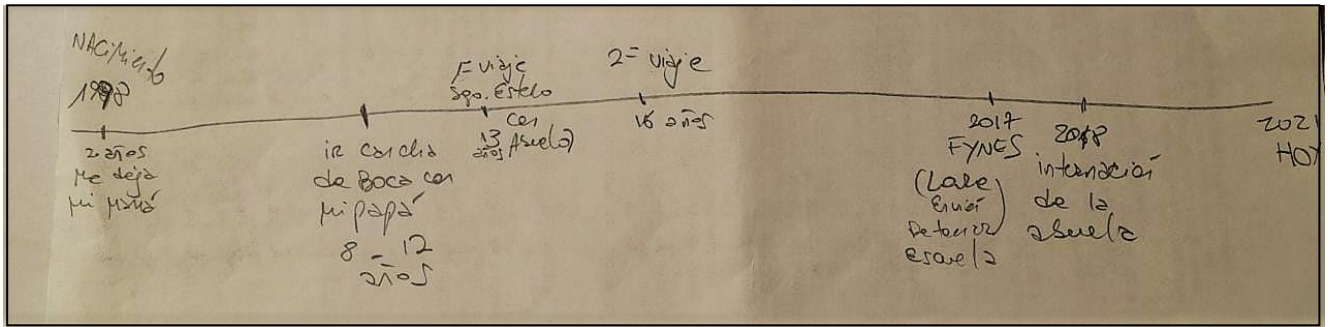 NACiMiento
1998
2 años
Me deja
mi mamá
ir cancha
de Boca con
mi papá
8 - 12
años
1= viaje
Sgo. Estelo
con
Abuela
13
años
2= viaje
16 años
2017
FYNES
(Lore
Detonar
escuela
2018
internación
de la
abuela
2021
HOY